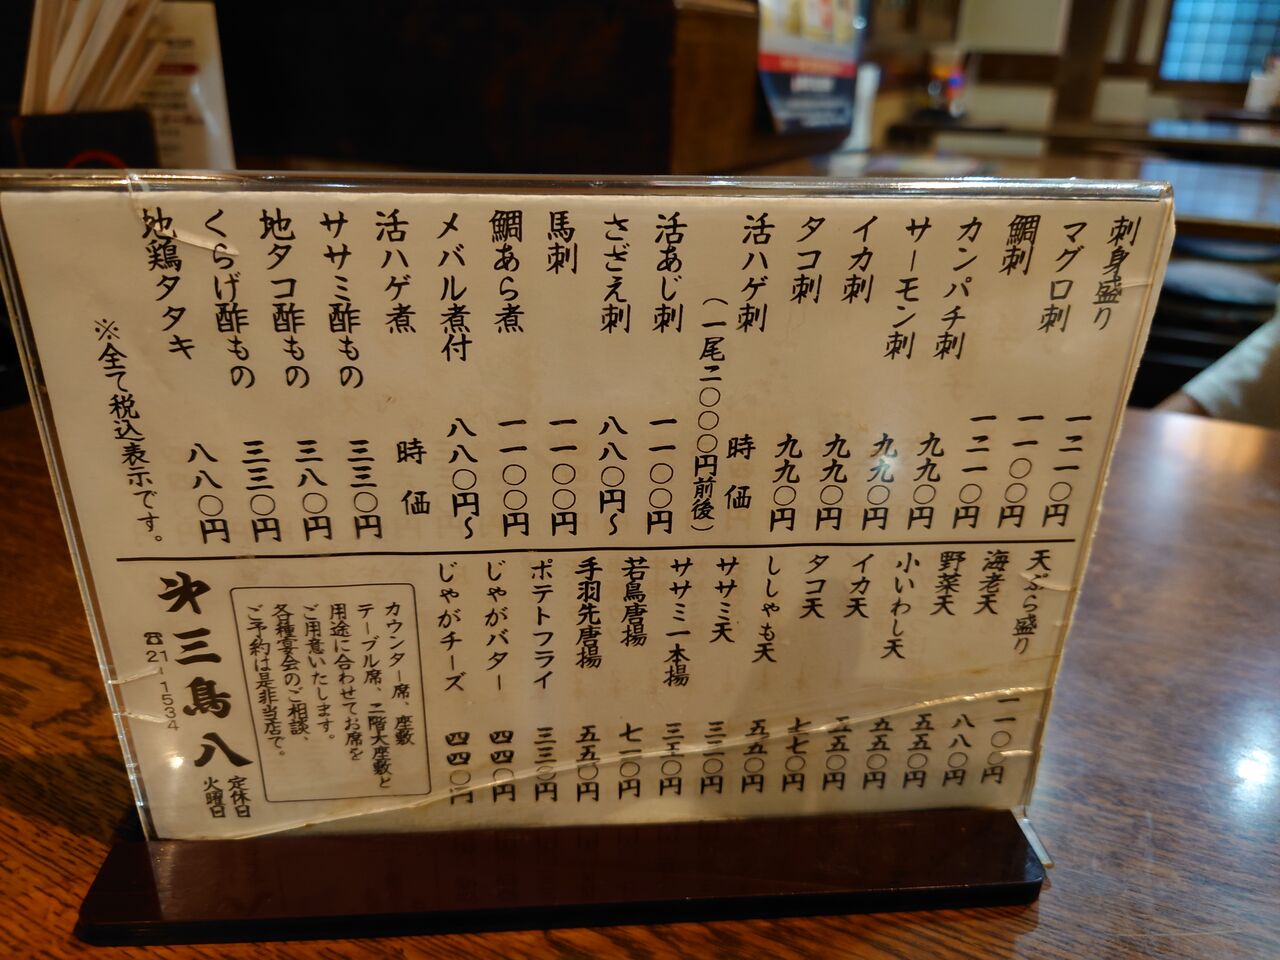 刺身盛り 一二一〇円
マグロ刺 一一〇〇円
鯛刺 一二一〇円
カンパチ刺 九九〇円
サーモン刺 九九〇円
イカ刺 九九〇円
タコ刺 九九〇円
活ハゲ刺 時価
(一尾二〇〇〇円前後)
活あじ刺 一一〇〇円
さざえ刺 八八〇円〜
馬刺 一一〇〇円
鯛あら煮 一一〇〇円
メバル煮付 八八〇円〜
活ハゲ煮 時価
ササミ酢もの 三三〇円
地タコ酢もの 三八〇円
くらげ酢もの 三三〇円
地鶏タタキ 八八〇円
※全て税込表示です。
天ぷら盛り 一一〇〇円
海老天 八八〇円
野菜天 五五〇円
小いわし天 五五〇円
イカ天 五五〇円
タコ天 七七〇円
ししゃも天 五五〇円
ササミ天
ササミ一本揚
若鳥唐揚 七一〇円
手羽先唐揚 五五〇円
ポテトフライ 三三〇円
じゃがバター 四四〇円
じゃがチーズ 四四〇円
カウンター席、座敷
テーブル席、二階大座敷と
用途に合わせてお席を
ご用意いたします。
各種宴会のご相談、
ご予約は是非当店で。
定休日
火曜日
第三鳥八
☎21-1534